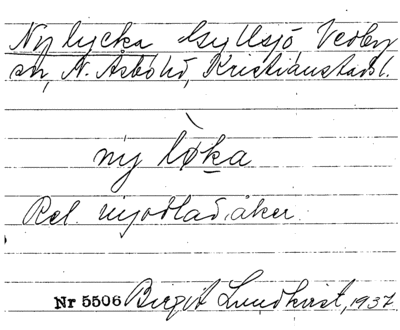 Nylycka Gyllsjö, Vedby
sn, N. Åsbo hd, Kristianstads l.
ny løka
Rel. nyodlad åker.
Nr 5506 Birgit Lundkvist, 1937